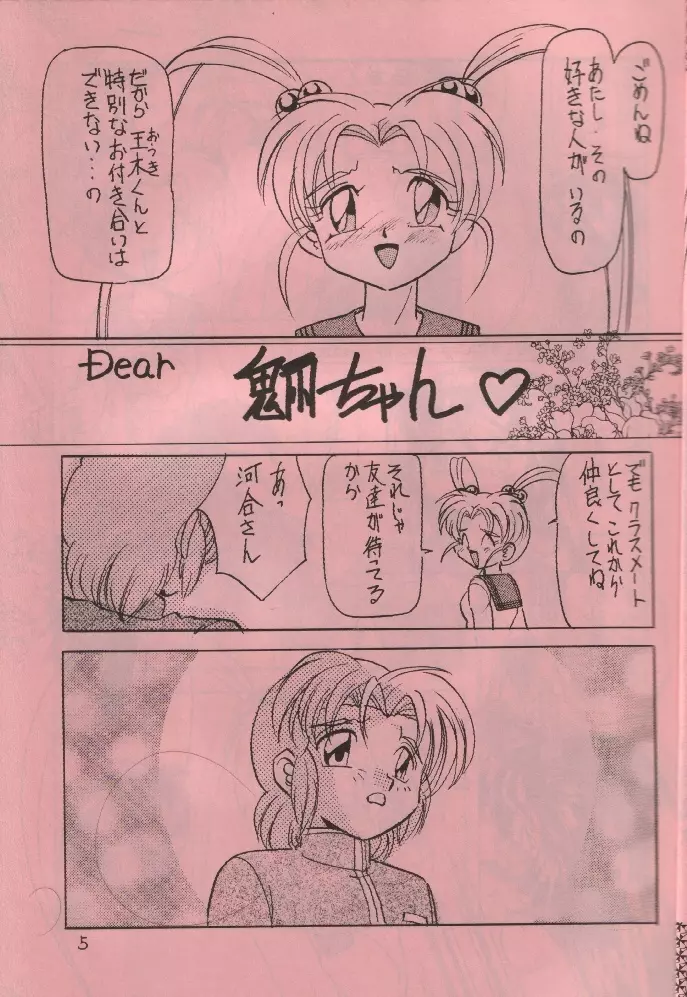 ごめんね
あたし・その
好きな人が いるの
だから 王木くんと
おっき
特別なお付き合いは
できない・・・の
Dear
ちゃん♡
でも クラスメート
として これから
仲良くしてね
それじゃ
友達が待ってる
から
あっ
河合さん
5